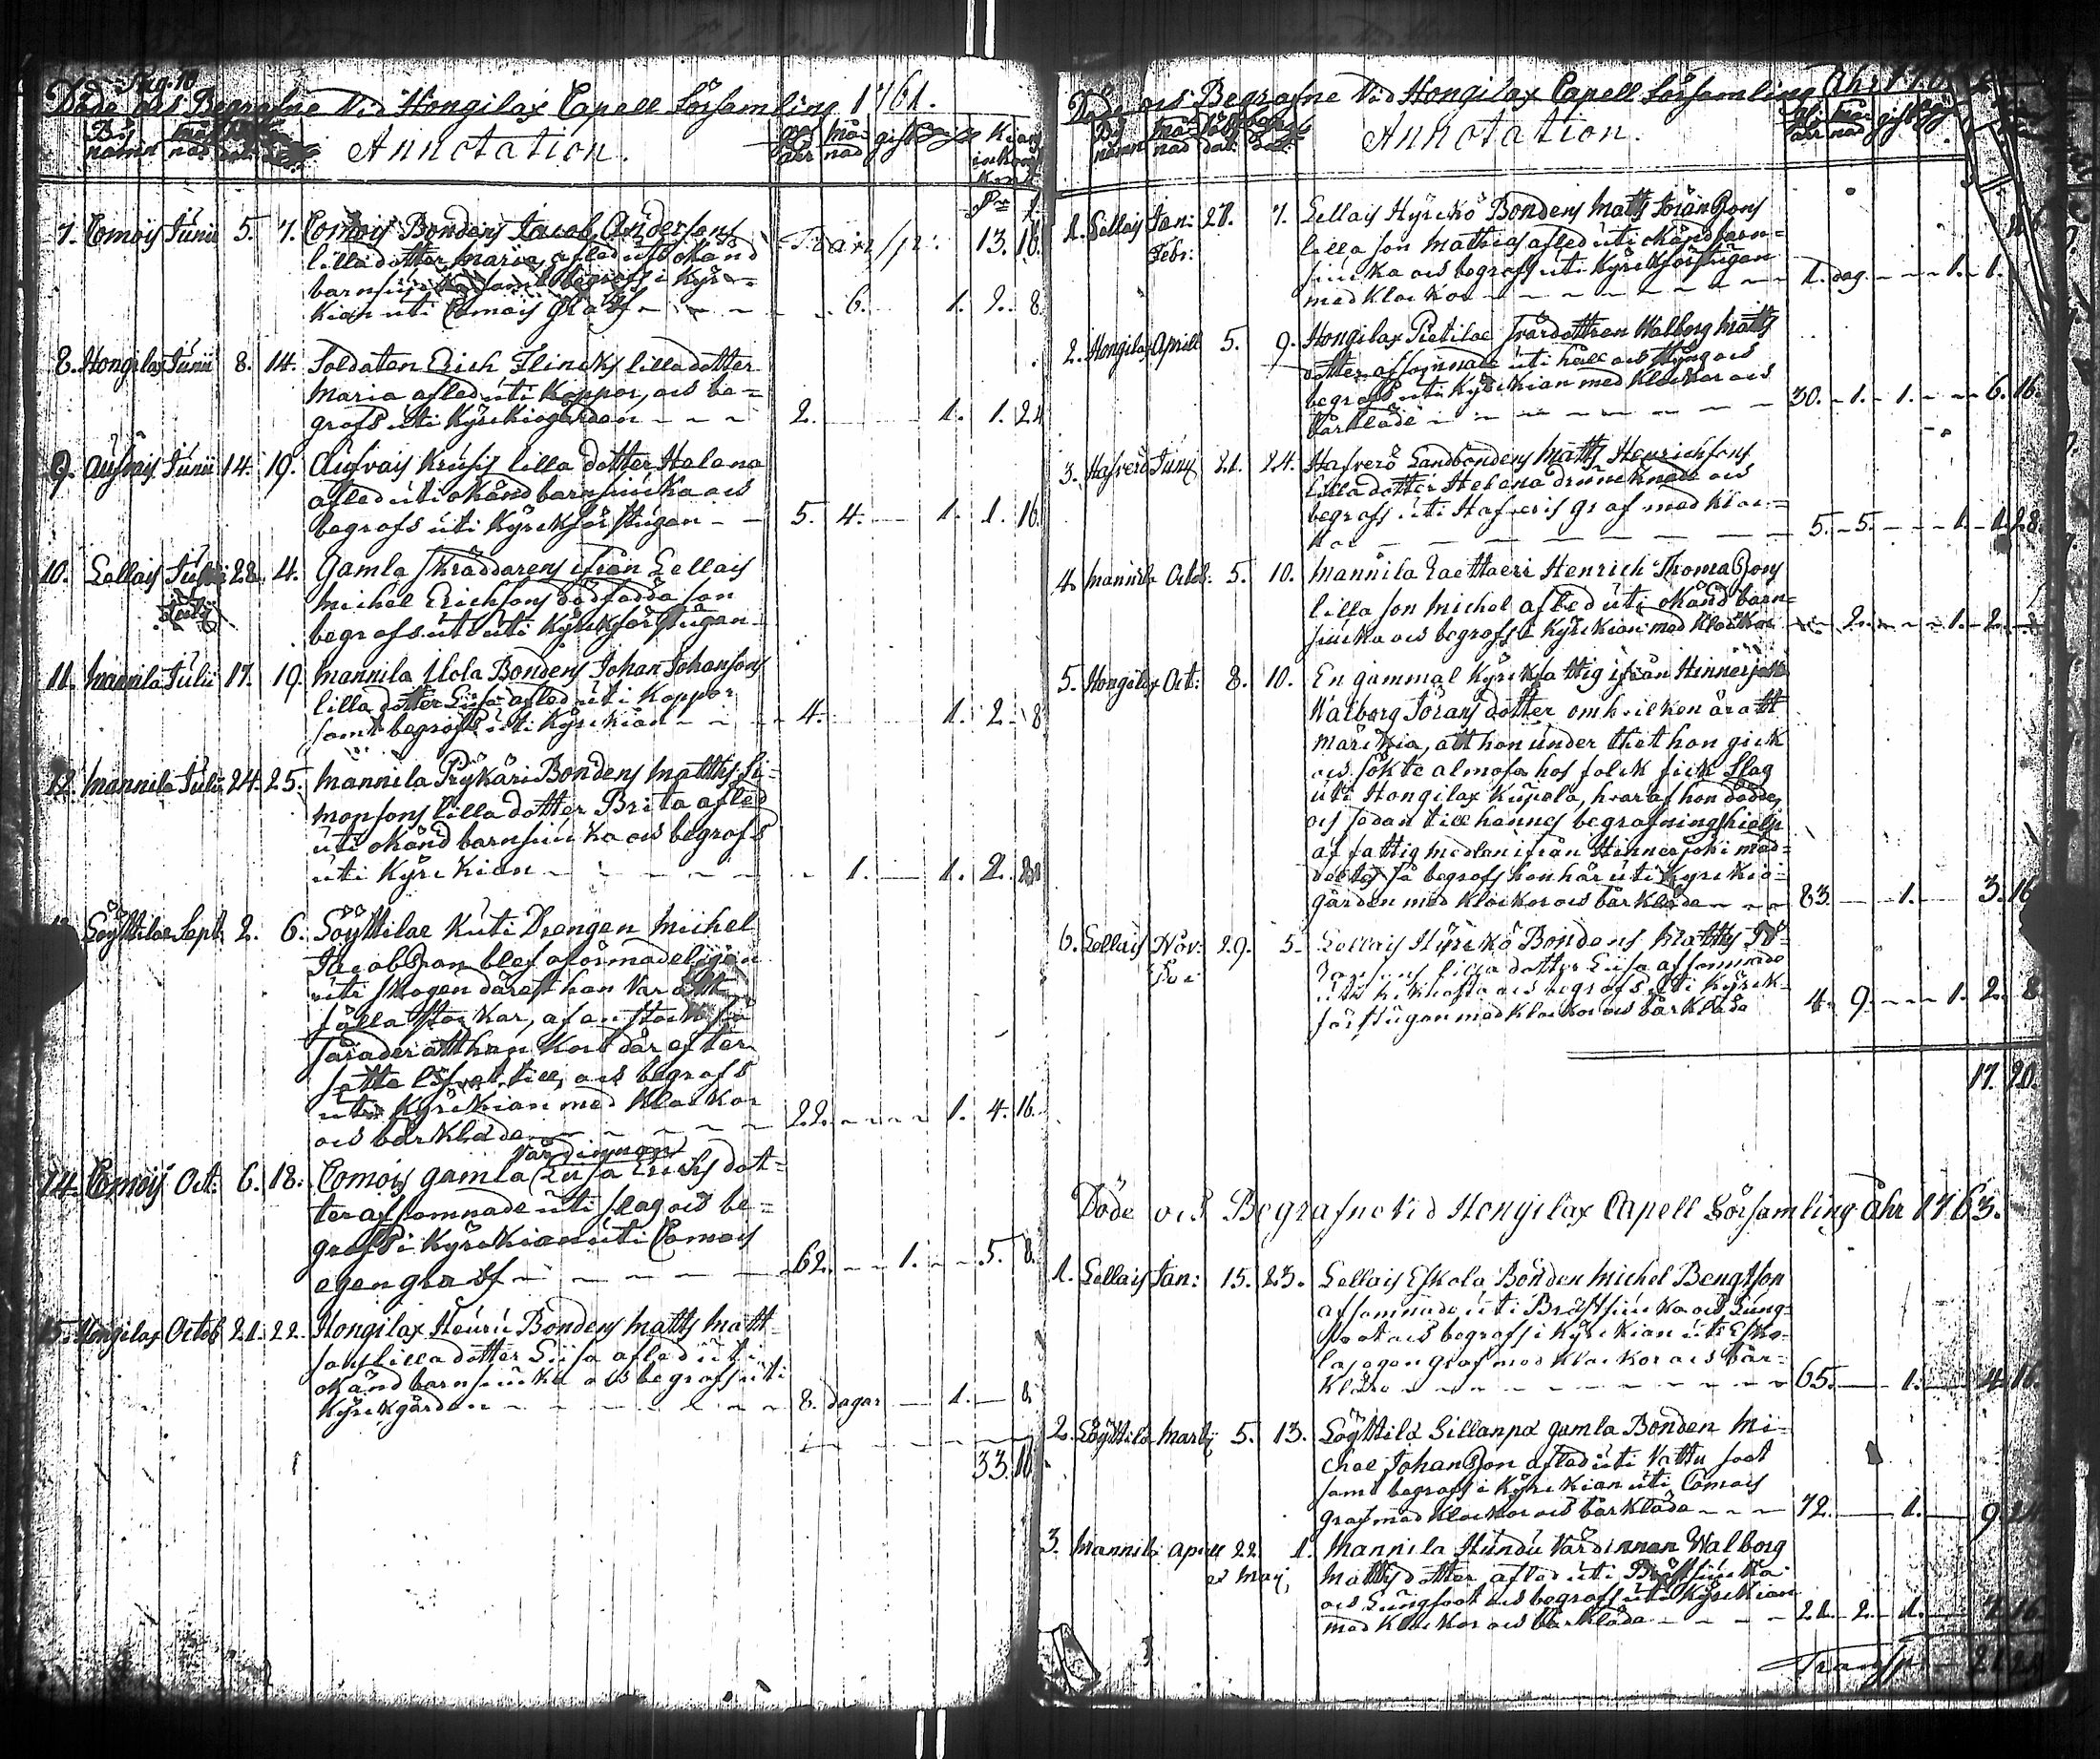 Pag. 10
Döde och Begrafne Vid Hongilax Capell Församling 1761.
Bÿs namn
Annotation.
åhr
må-nad
gift
Transp:
13. 16.
7. Comois Junii 5. 7. Comois Bondens Jacob Andersons
lilla dotter Maria afled uti okänd
barnsiuka samt begrofs i Kÿr-
kian uti Comois graf - - - 6. 1. 2. 8
8. Hongilax Junii 8. 14. Soldaten Erich Flincks lilla dotter
Maria afled uti Koppor, och be-
grofs uti Kÿrckiogården - - - 2. 1. 1. 24
9. Aufvais Junii 14. 19. Aufvais Krusis lilla dotter Halena
afled uti okänd barnsiuka och
begrofs uti Kÿrckförstugan - - 5. 4. 1. 1. 16
10. Lellais 28. 4. Gamla Skräddarens ifrån Lellais
Julij Michel Erichsons dödfödda son
begrofs uti Kÿrckförstugan
11. Mannila Julii 17. 19. Mannila Ilola Bondens Johan Johansons
lilla dotter Lisa afled uti Koppor
samt begrofs uti Kÿrckian - - - 4. 1. 2. 8
12. Mannila Julii 24. 25. Mannila Prÿkäri Bondens Matths Si-
monsons lilla dotter Brita afled
uti okänd barnsiuka och begrofs
uti Kÿrckian - - - - - 1. 1. 2.
Löÿttilae Sept. 2. 6. Löÿttilae Kuti Drengen Michel
Jacobsson blef
uti skogen därest han Var att
fälla stockar, af en stock så
sårader att han Kort där efter
satte lifvet till, och begrofs
uti Kÿrckian med Klockor
och bårkläde - - - - - 22. 1. 4. 16.
14. Comois Oct: 6. 18. Comois gamla Värdinnan Lisa Erichs dot-
ter afsomnade uti slag och be-
grofs i Kÿrckian uti Comois
egen graf - - - - - 62. 1. 5. 8.
15. Hongilax Octob 21. 22. Hongilax Heuru Bondens Matts Matt-
sons lilla dotter Lisa afled uti
okänd barnsiuka och begrofs uti
Kÿrckgården - - - - - 8. dagar 1. 8
33. 16
Döde och Begrafne Vid Hongilax Capell Församling Åhr
Bÿ namn
må-nad
Annotation.
åhr
må-nad
gift
1. Lellais Jan: 28. 7. Lellais Hÿrckö Bondens Matts Jöransons
Febr: lilla son Mathias afled uti okänd barn-
siucka och begrofs uti Kÿrckförstugan
med Klockor - - - - - 1. dag - - 1. 1.
2. Hongilax Aprill 5. 9. Hongilax Pietilae Svärdottren Walborg Matts
dotter afsomnade uti håll och stÿng och
begrofs uti Kÿrckian med Klockor och
bårkläde - - - - - 30. 1. 1. 6. 16.
3. Hafverö Junij 21. 24. Hafverö Landbondens Matts Henrichsons
lilla dotter Helena druncknade och
begrofs uti Hafveris graf med Kloc-
kor - - - - - 5. 5. 1.
4. Mannila Octob: 5. 10. Mannila Laettaeri Henrich Thomassons
lilla son Michel afled uti okänd barn-
siucka och begrofs i Kÿrckian med Klockor 2. 1. 2.
5. Hongilax Oct: 8. 10. En gammal Kÿrckfattig ifrån Hinnerjoki
Walborg Jörans dotter om hvilken är att
märckia, att hon under thet hon gick
och sökte almosa hos folck fick slag
uti Hongilax Kupola, hvaraf hon dödde,
och sedan till hännes begrafningshielp
af fattig medlen ifrån Hinnerjoki med-
deltes så begrofs hon här uti Kÿrckio-
gården med Klockor och bårkläde - - - 83. 1. 3. 16
6. Lellais Nov: 29. 5. Lellais Hÿrckö Bondens Matths Jö-
ransons lilla dotter Lisa afsomnade
uti Kikhosta och begrofs uti Kÿrck-
förstugan med Klockor och bårkläde 4. 9. 1. 2. 8
17. 20.
Döde och Begrafne Vid Hongilax Capell Församling Åhr 1763.
1. Lellais Jan: 15. 23. Lellais Eskola Bonden Michel Bengtson
afsomnade uti Bröstsiucka och Lung-
soot och begrofs i Kÿrckian uti Esko-
las egen graf med Klockor och bår-
kläde - - - - - 65. 1. 4. 16.
2. Löÿttilä Martij 5. 13. Löÿttilä Sillanpä gamla Bonden Mi-
chel Johansson afled uti Vattu soot
samt begrofs i Kÿrckian uti Comois
graf med Klockor och bårkläde - - - 72. 1. 9. 24
3. Mannila April 22. 1. Mannila Hundu Värdinnan Walborg
et Maij Matthsdotter afled uti Bröstsiucka
och Lungsoot och begrofs uti Kÿrckian
med Klockor och bårkläde - - - - 21. 2. 1. 7. 16
Transp: